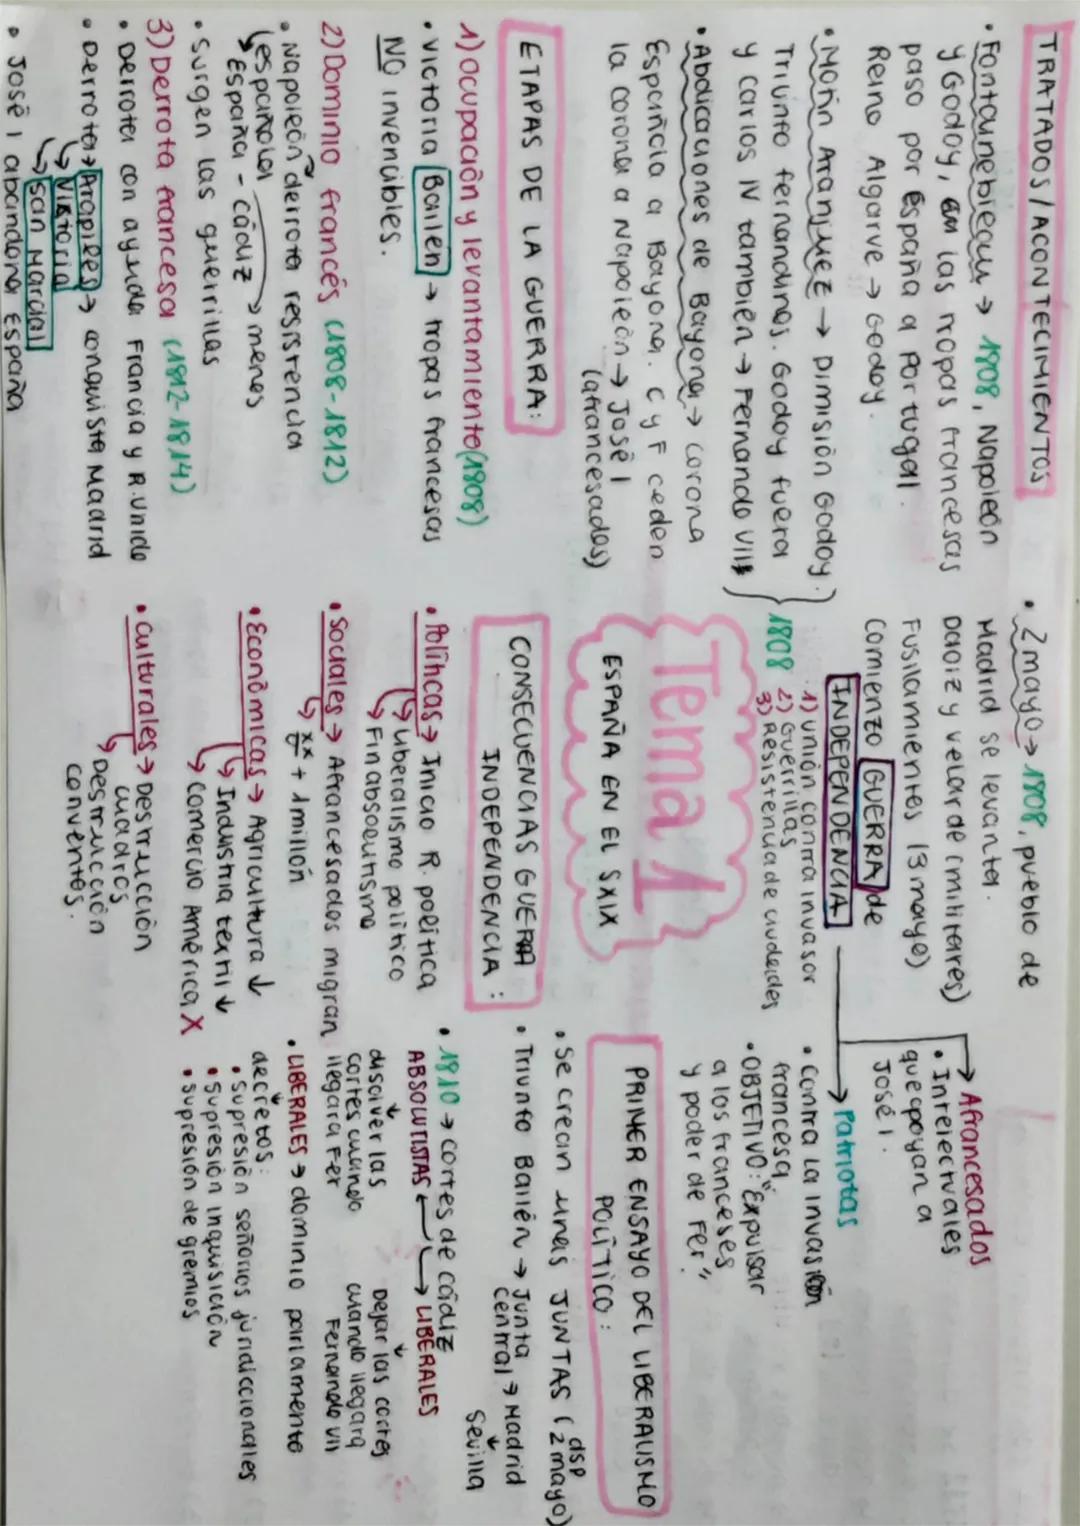 TRATADOS/ACONTECIMIENTOS
• Fontaunebleau → 1808, Napoleón
y Godoy, las tropas francesas
paso por España a Portugal.
Reino Algarve → Godoy.
• Motín Aranjuez → Dimisión Godoy.
Triunfo fernandinos. Godoy fuera
y Carlos IV también → Fernando VII
1808
• Abdicaciones de Bayona → corona
España a Bayona. C y F ceden
la corona a Napoleón → José I
(afrancesados)
ETAPAS DE LA GUERRA:
1) Ocupación y levantamiento (1808)
• Victoria Bailén → tropas francesas
NO invencibles.
2) Dominio francés (1808-1812)
• Napoleón derrota resistencia
española
↳ España - Cádiz → menos
• Surgen las guerrillas
3) Derrota francesa (1812-1814)
• Derrota con ayuda Francia y R.Unido
• Derrota → Arapiles → conquista Madrid
↳ Vistoria
↳ San Marcial
• José I abandona España
• 2 mayo → 1808, pueblo de
Madrid se levanta.
Daoiz y Velarde (militares)
Fusilamientos (3 mayo)
Comienzo GUERRA de
INDEPENDENCIA
1) Unión contra invasor
2) Guerrillas
3) Resistencia de ciudades
Tema 1
ESPAÑA EN EL SXIX
CONSECUENCIAS GUERRA
INDEPENDENCIA:
• Políticas → Inicio R. política
↳ Liberalismo político
↳ Fin absolutismo
• Sociales → Afrancesados migran
↳ + 1 millón
• Económicas → Agricultura ↓
↳ Industria textil ↓
↳ Comercio América X
• Culturales → Destrucción
cuadros
↳ Destrucción
conventos.
→ Afrancesados
• Intelectuales
que apoyan a
José I.
→ Patriotas
• Contra la invasión
francesa
• OBJETIVO: "Expulsar
a los franceses
y poder de Fer"
PRIMER ENSAYO DEL LIBERALISMO
POLÍTICO:
• Se crean unas JUNTAS (dsp 2 mayo)
• Triunfo Bailén → Junta
Central → Madrid
↓
Sevilla
• 1810 → Cortes de Cádiz
ABSOLUTISTAS ← → LIBERALES
↓
disolver las
cortes cuando
llegara Fer
↓
Dejar las cortes
cuando llegara
Fernando VII
• LIBERALES → dominio parlamento
↓
decretos:
• Supresión señoríos juridiccionales
• Supresión inquisición
• Supresión de gremios